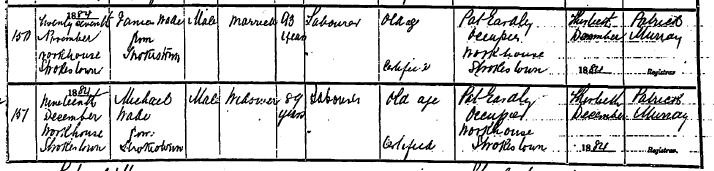 1884
Twenty seventh
November
Workhouse
Strokestown
150
James Wade
from
Strokestown
Male
Married
93
years
Labourer
Old age
Certified
Pat Eardly
Occupier
Workhouse
Strokestown
Thirtieth
December
1884
Patrick
Murray
Registrar.
1884
Nineteenth
December
Workhouse
Strokestown
151
Michael
Wade
from
Strokestown
Male
Widower
89
years
Labourer
Old age
Certified
Pat Eardly
Occupier
Workhouse
Strokestown
Thirtieth
December
1884
Patrick
Murray
Registrar.